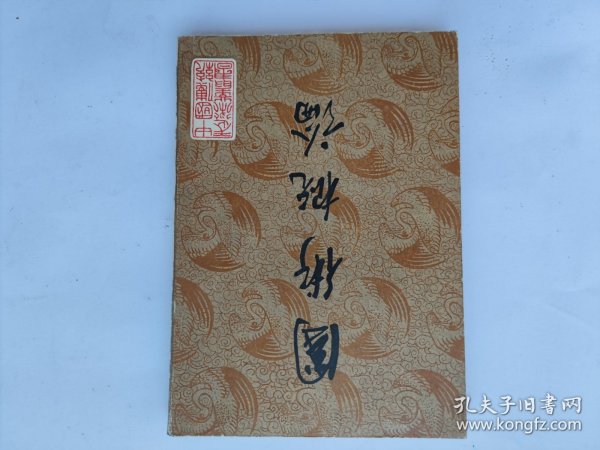 國術概論
孔夫子旧书网
www.kongfz.com